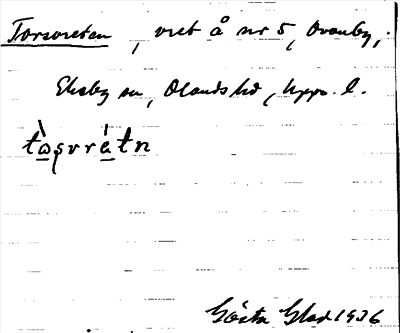 Torsvreten, vret å nr 5, Ovanby,
Ekeby sn, Olands hd, Upps. l.
tòsvrétn
Gösta Glad 1936